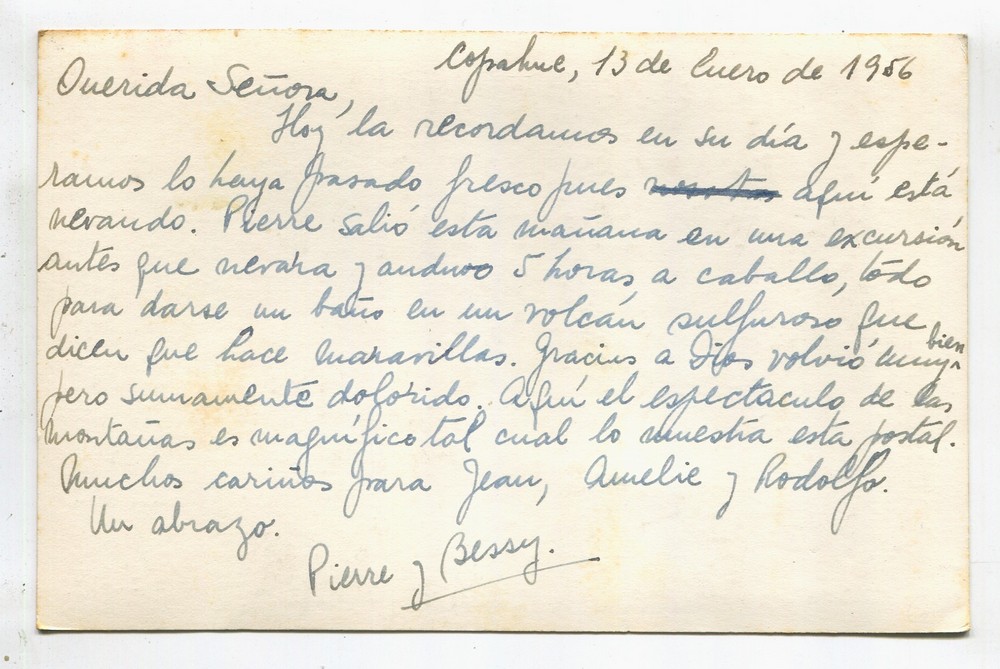 Copahue, 13 de Enero de 1956
Querida Señora,
Hoy la recordamos en su día y espe-
ramos lo haya pasado fresco pues nosotros aquí está
nevando. Pierre salió esta mañana en una excursión
antes que nevara y anduvo 5 horas a caballo, todo
para darse un baño en un volcán sulfuroso que
dicen que hace maravillas. Gracias a Dios volvió muy bien
pero sumamente dolorido. Aquí el espectaculo de las
montañas es magnífico tal cual lo muestra esta postal.
Muchos cariños para Jean, Amelie y Rodolfo.
Un abrazo.
Pierre y Bessy.